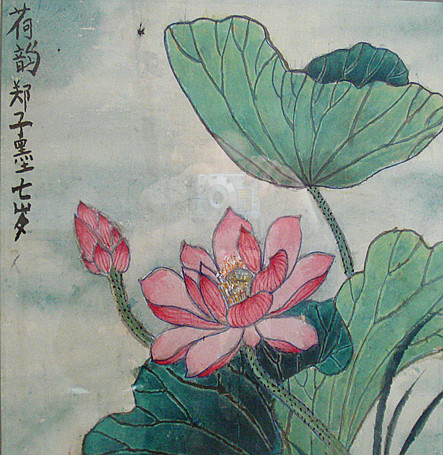 荷韵郑子墨七岁